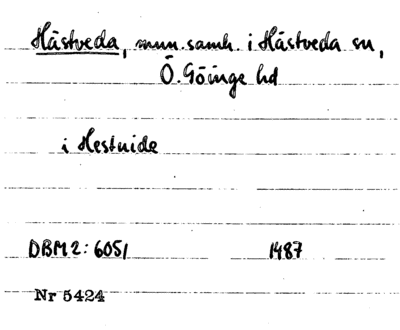 Hästveda, mun.samh. i Hästveda sn,
Ö. Göinge hd
i Hestuide
DBM 2: 6051 1487
Nr 5424